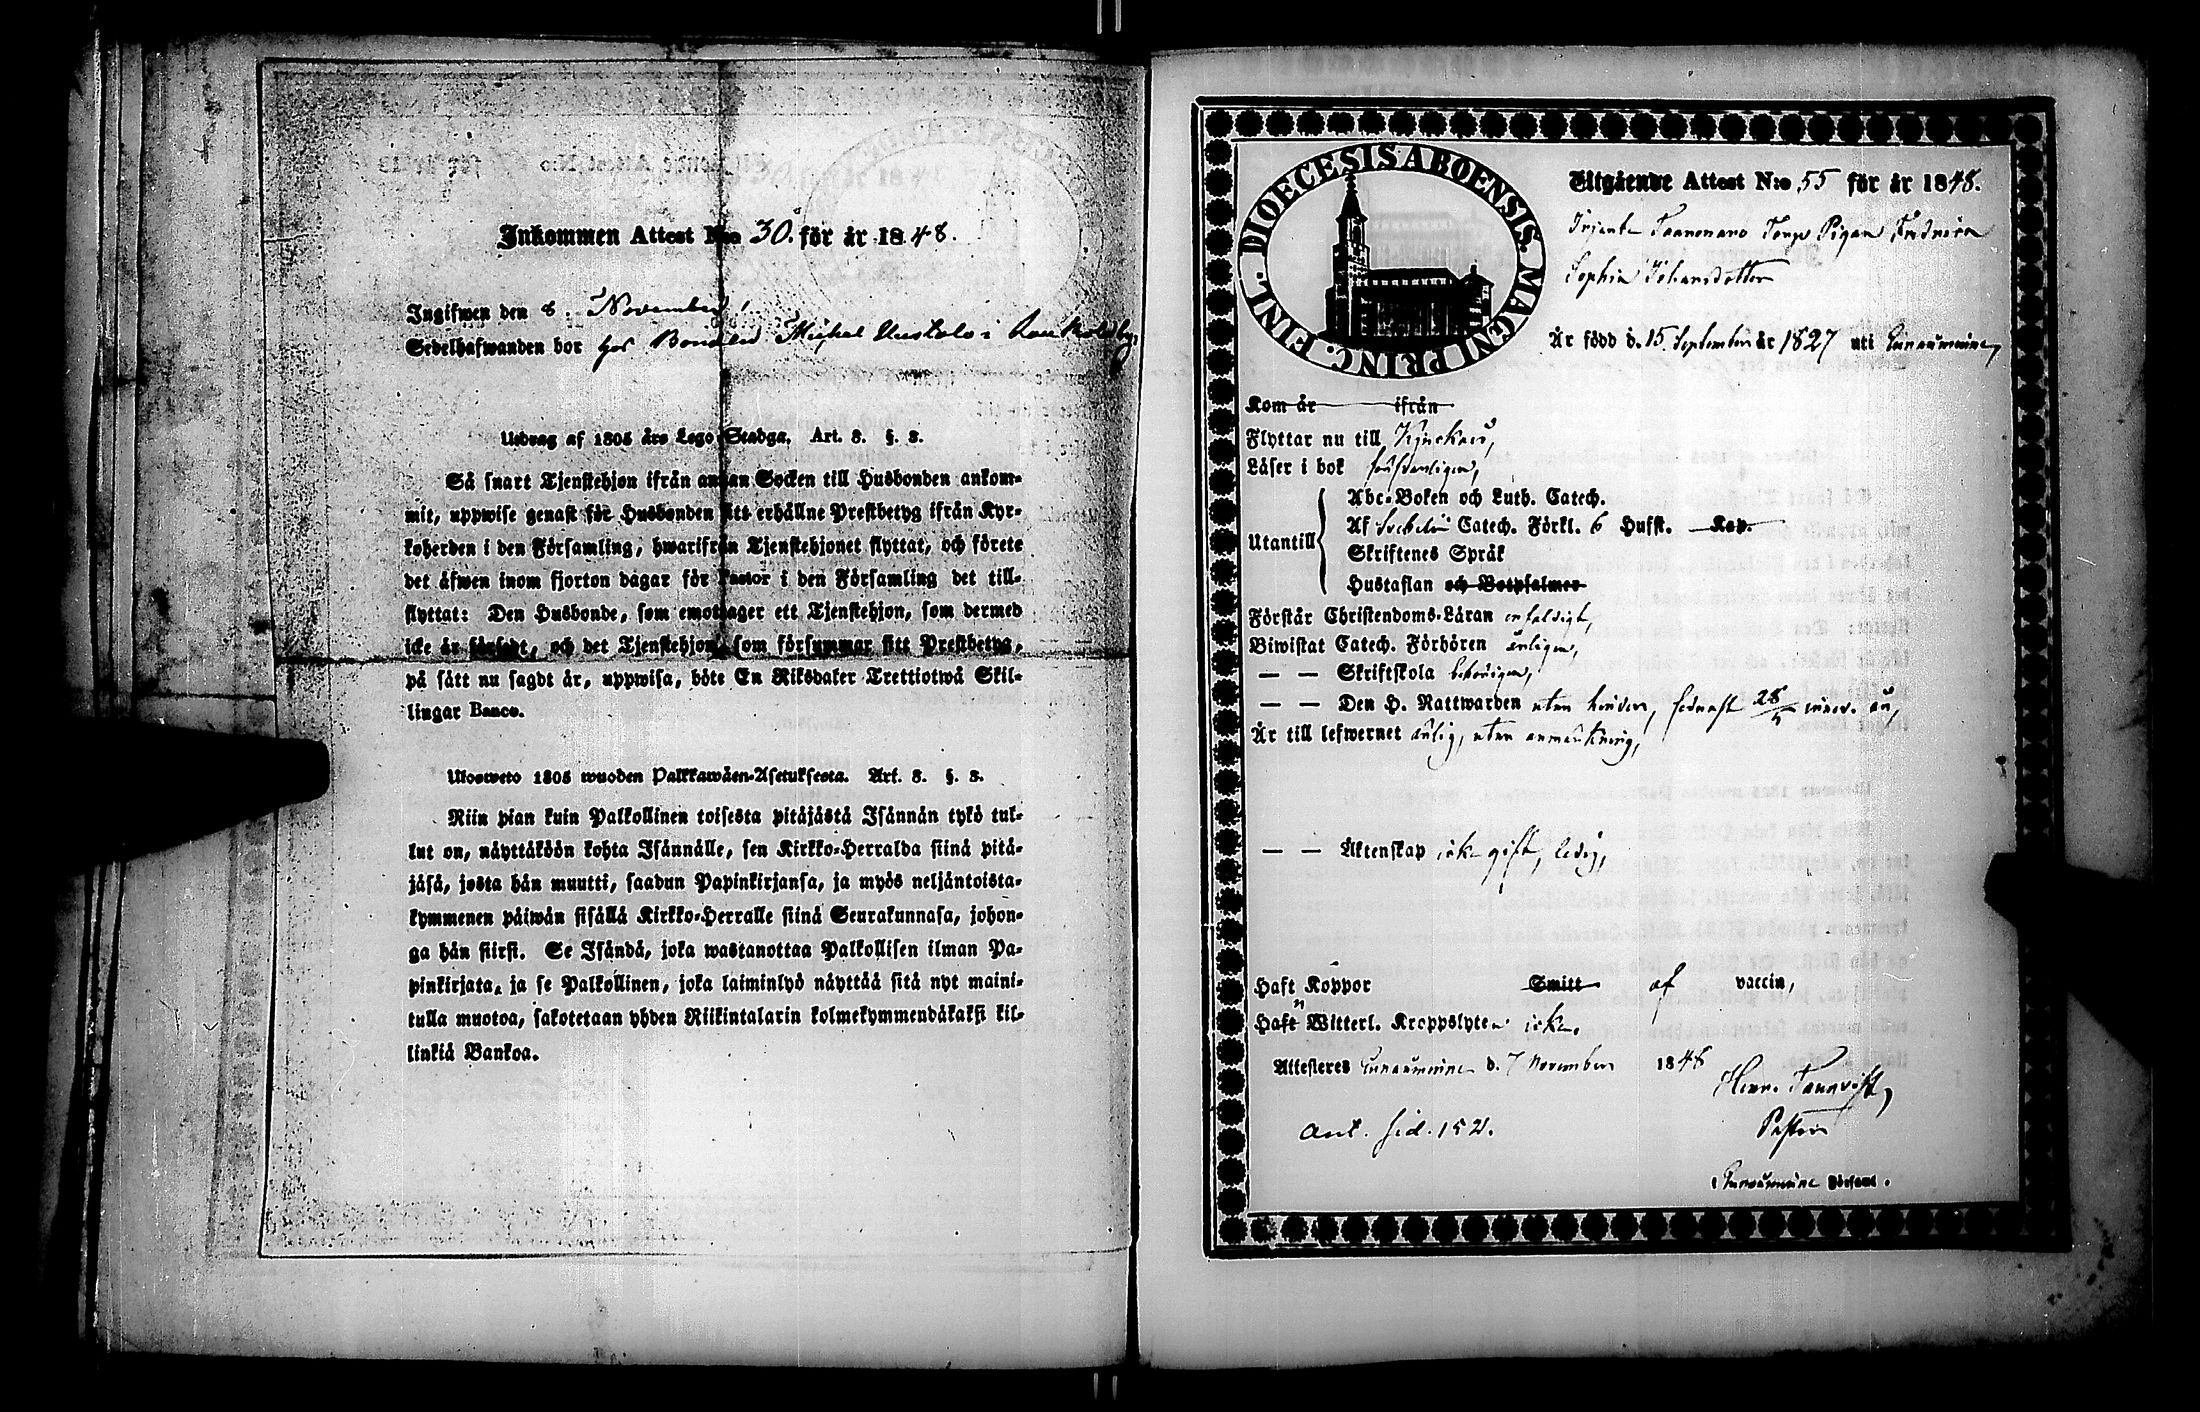 Inkommen Attest N:o 30. för år 1848.
Ingifwen den 8. November
Sedelhafwanden bor hos Bonden Michel i
Utdrag af 1805 års Lego-Stadga. Art. 8. §. 3.
Så snart Tjenstehjon ifrån annan Socken till Husbonden ankom-
mit, uppwise genast för Husbonden sitt erhållne Prestbetyg ifrån Kyr-
koherden i den Församling, hwarifrån Tjenstehjonet flyttat, och förete
det äfwen inom fjorton dagar för Pastor i den Församling det till-
flyttat: Den Husbonde, som emottager ett Tjenstehjon, som dermed
icke är försedt, och det Tjenstehjon, som försummar sitt Prestbetyg,
på sätt nu sagdt är, uppwisa, böte En Riksdaler Trettiotwå Skil-
lingar Banco.
Ulosweto 1805 wuoden Palkkawäen-Asetuksesta. Art. 8. §. 3.
Niin pian kuin Palkollinen toisesta pitäjästä Isännän tykö tul-
lut on, näyttäköön kohta Isännälle, sen Kirkko-Herralda siinä pitä-
jäsä, josta hän muutti, saadun Papinkirjansa, ja myös neljäntoista-
kymmenen päiwän sisällä Kirkko-Herralle siinä Seurakunnasa, johon-
ga hän siirsi. Se Isändä, joka wastanottaa Palkollisen ilman Pa-
pinkirjata, ja se Palkollinen, joka laiminlyö näyttää sitä nyt maini-
tulla muotoa, sakotetaan yhden Riikintalarin kolmekymmendäkaksi kil-
linkiä Bankoa.
FINL. DIOECESIS ABOENSIS. MAGNI PRINC.
Utgående Attest N:o 55 för år 1848.
Pigan Fredrica
Sophia Johansdotter
Är född d. 15 September år 1827 uti Gustafs
Kom år ifrån
Flyttar nu till
Läser i bok
Utantill
Abc-Boken och Luth. Catech.
Af Svebelii Catech. Förkl. 6 Hufst. Kap.
Skriftenes Språk
Hustaflan och Botpsalmer
Förstår Christendoms-Läran enfaldigt,
Biwistat Catech. Förhören årligen,
— — Skriftskola behörigen,
— — Den H. Nattwarden utan hinder, sednast 28/5 innev. år,
Är till lefwernet ärlig, utan anmärkning,
— — Äktenskap icke gift, ledig,
Haft Koppor Smitt af vaccin,
Haft Witterl. Kroppslyte icke.
Attesteras d. 7 November 1848
Ant. sid. 152.
Pastor
Församl.